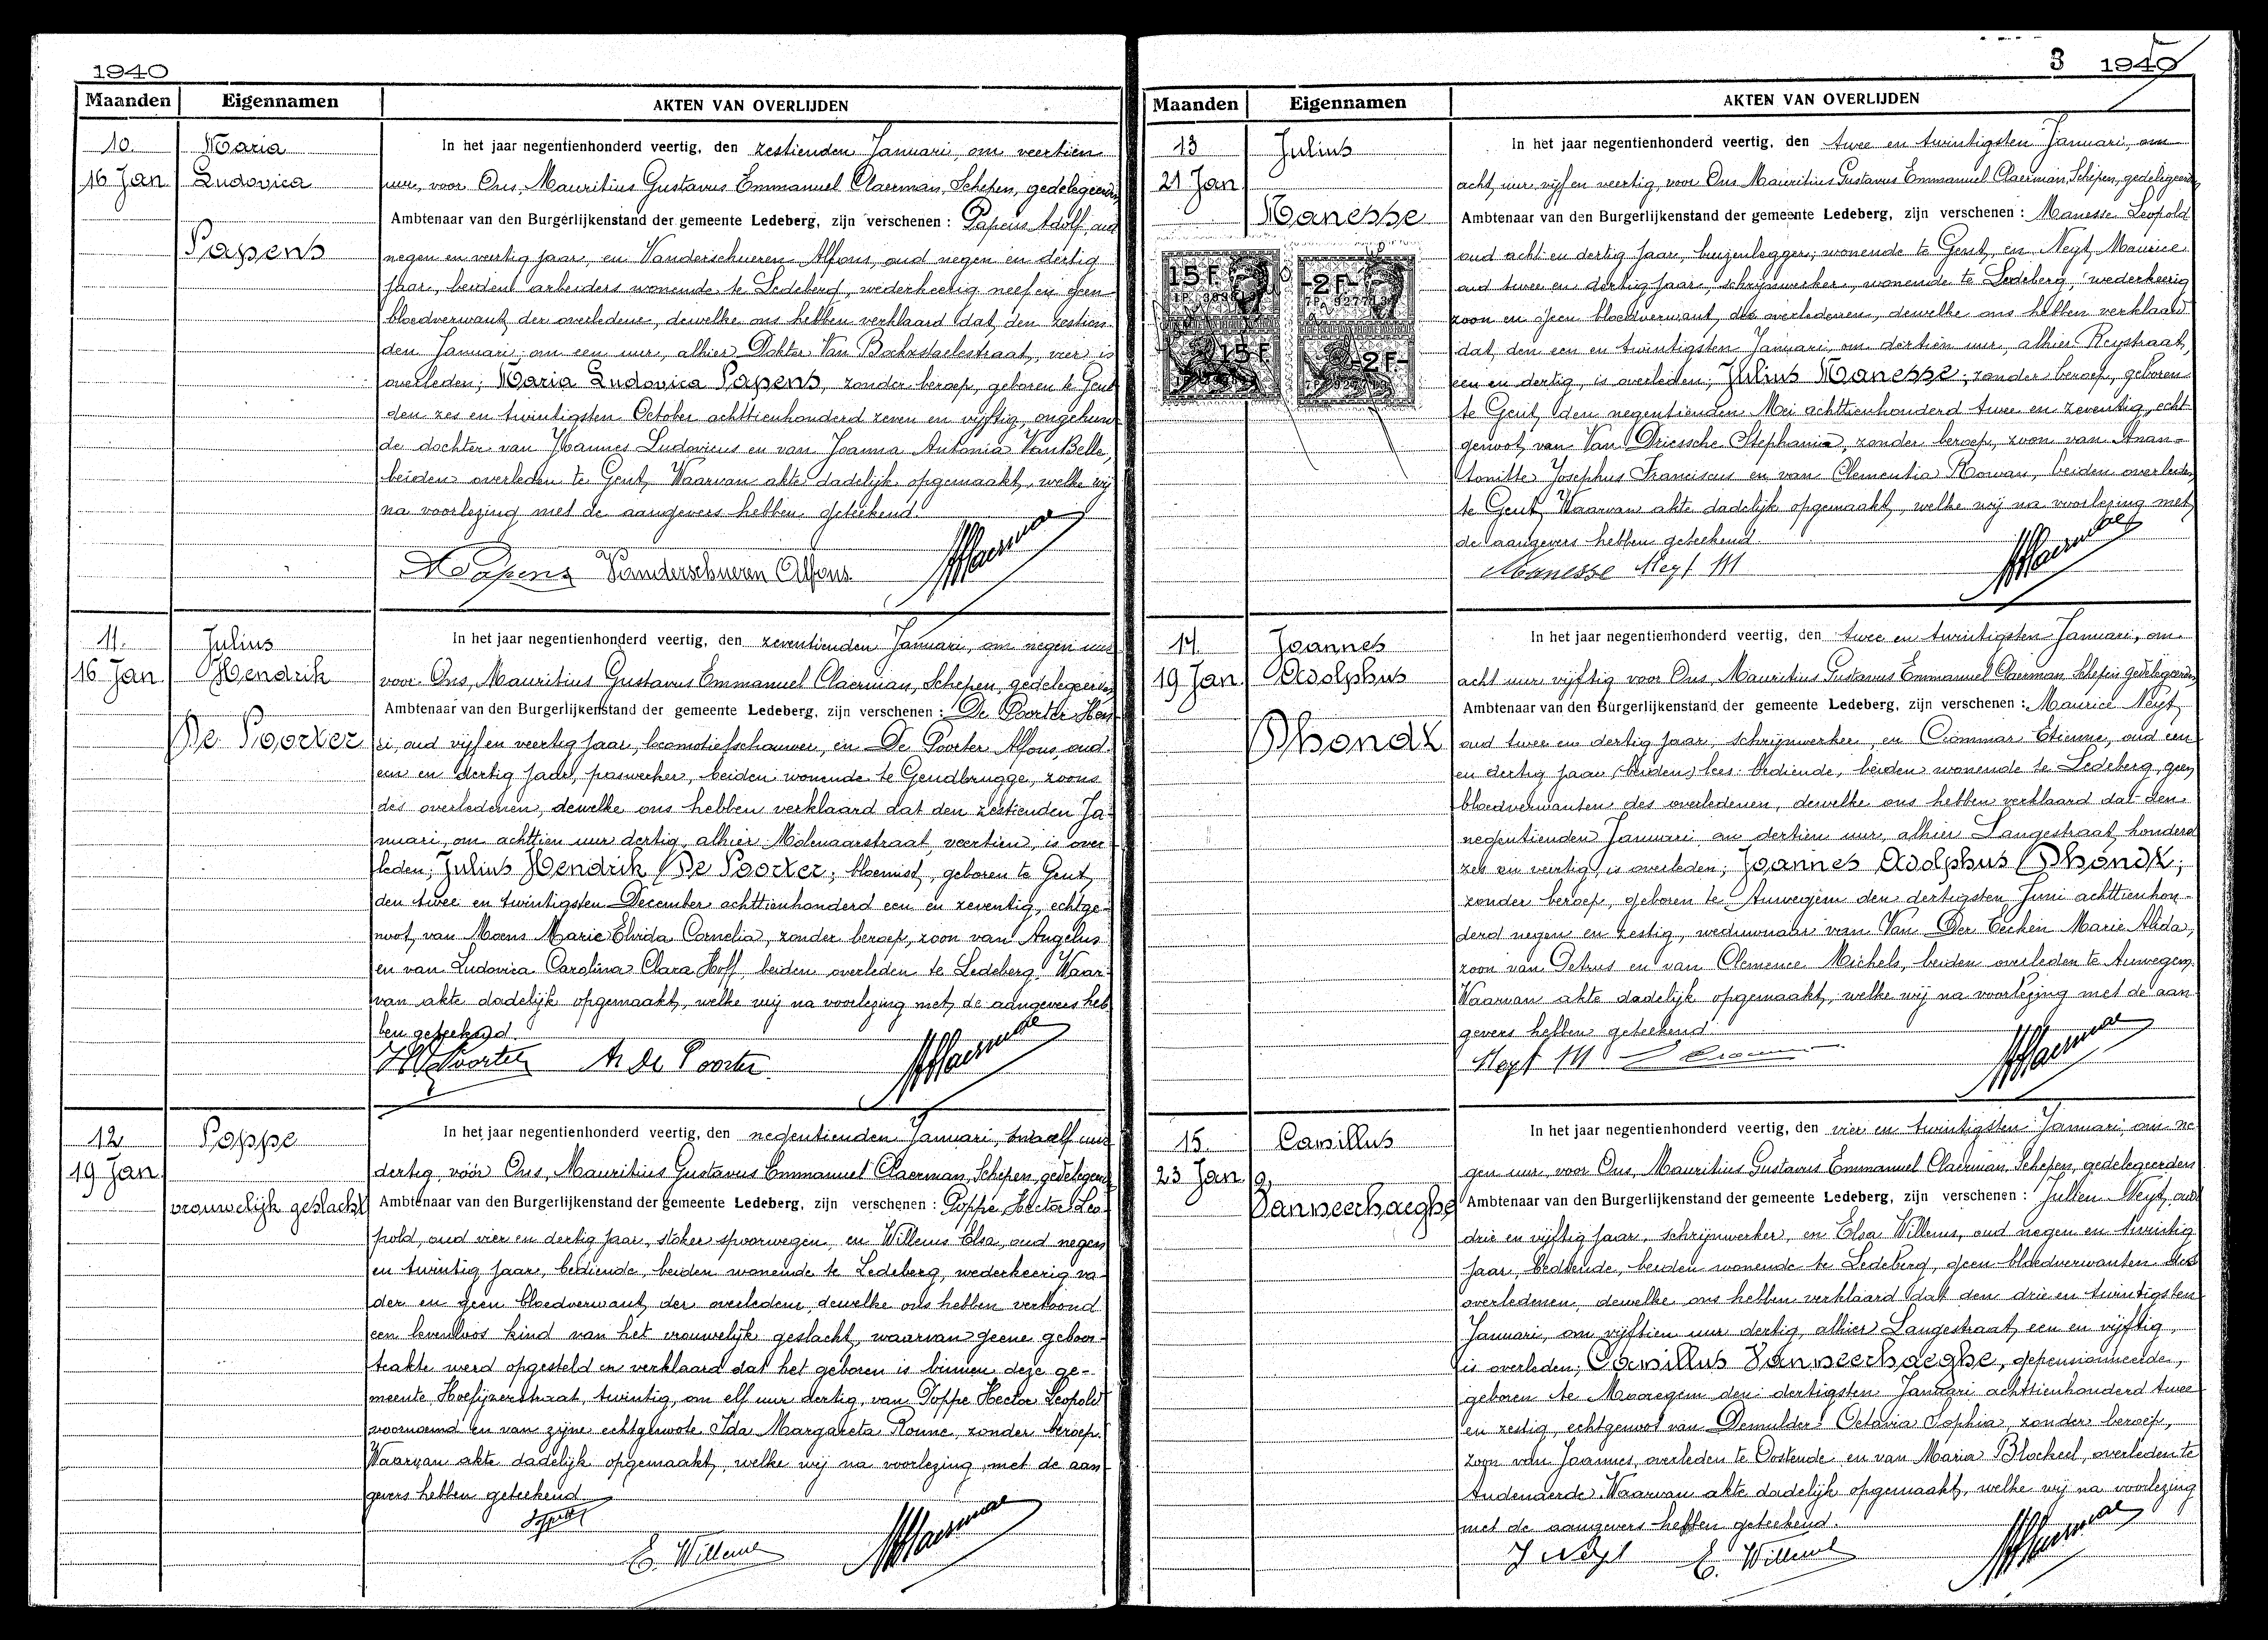 1940
Maanden Eigennamen AKTEN VAN OVERLIJDEN
10. Maria
16 Jan Ludovica
Papens
In het jaar negentienhonderd veertig, den zestienden Januari, om veertien
uur, voor Ons, Mauritius Gustavus Emmanuel Claerman, Schepen, gedelegeerden
Ambtenaar van den Burgerlijkenstand der gemeente Ledeberg, zijn verschenen : Papens Adolf oud
negen en veertig jaar, en Vanderschueren Alfons, oud negen en dertig
jaar, beiden arbeiders wonende te Ledeberg, wederkeerig neef en geen
bloedverwant der overledene, dewelke ons hebben verklaard dat den zestien
den Januari om een uur, alhier Dokter Van Bockxstaelestraat, vier is
overleden; Maria Ludovica Papens, zonder beroep, geboren te Gent
den zes en twintigsten October achttienhonderd zeven en vijftig, ongehuw
de dochter van Joannes Ludovicus en van Joanna Antonia VanBelle,
beiden overleden te Gent, Waarvan akte dadelijk opgemaakt, welke wij
na voorlezing met de aangevers hebben geteekend.
A Papens Vanderschueren Alfons
11. Julius
16 Jan Hendrik
De Poorter
In het jaar negentienhonderd veertig, den zeventienden Januari, om negen uur
voor Ons, Mauritius Gustavus Emmanuel Claerman, Schepen, gedelegeerden
Ambtenaar van den Burgerlijkenstand der gemeente Ledeberg, zijn verschenen : De Poorter Hen
ri, oud vijf en veertig jaar, locomotiefschouwer, en De Poorter Alfons, oud
een en dertig jaar, paswerker, beiden wonende te Gendbrugge, zoons
des overledenen, dewelke ons hebben verklaard dat den zestienden Ja
nuari, om achttien uur dertig, alhier Molenaarstraat, veertien, is over
leden; Julius Hendrik De Poorter; bloemist, geboren te Gent,
den twee en twintigsten December achttienhonderd een en zeventig, echtge
noot van Moens Marie Elvida Cornelia, zonder beroep, zoon van Angelus
en van Ludovica Carolina Clara Hoff, beiden overleden te Ledeberg. Waar
van akte dadelijk opgemaakt, welke wij na voorlezing met de aangevers heb
ben geteekend.
A De Poorter
12 Poppe
19 Jan
vrouwelijk geslacht
In het jaar negentienhonderd veertig, den negentienden Januari, twaalf uur
dertig, vóór Ons, Mauritius Gustavus Emmanuel Claerman, Schepen, gedelegeerden
Ambtenaar van den Burgerlijkenstand der gemeente Ledeberg, zijn verschenen : Poppe Hector Leo
pold, oud vier en dertig jaar, stoker spoorwegen, en Willems Elsa, oud negen
en twintig jaar, bediende, beiden wonende te Ledeberg, wederkeerig va
der en geen bloedverwant der overledene, dewelke ons hebben vertoond
een levenloos kind van het vrouwelijk geslacht, waarvan geene geboor
teakte werd opgesteld en verklaard dat het geboren is binnen deze ge-
meente Hoefijzerstraat, twintig, om elf uur dertig, van Poppe Hector Leopold
voornoemd en van zijne echtgenoote Ida Margareta Ronne, zonder beroep.
Waarvan akte dadelijk opgemaakt, welke wij na voorlezing met de aan
gevers hebben geteekend
E. Willems
3 1940
Maanden Eigennamen AKTEN VAN OVERLIJDEN
13 Julius
21 Jan
Manesse
15 F 2 F
15 F 2 F
In het jaar negentienhonderd veertig, den twee en twintigsten Januari, om
acht uur vijf en veertig voor Ons Mauritius Gustavus Emmanuel Claerman, Schepen, gedelegeerden
Ambtenaar van den Burgerlijkenstand der gemeente Ledeberg, zijn verschenen : Manesse Leopold
oud acht en dertig jaar, buizenlegger, wonende te Gent, en Neyt Maurice
oud twee en dertig jaar, schrijnwerker, wonende te Ledeberg, wederkeerig
zoon en geen bloedverwant des overledenen, dewelke ons hebben verklaard
dat, den een en twintigsten Januari, om dertien uur, alhier Reystraat,
een en dertig, is overleden; Julius Manesse; zonder beroep, geboren
te Gent, den negentienden Mei achttienhonderd twee en zeventig, echt
genoot van Van Driessche Stephania, zonder beroep, zoon van Anan-
Josephus Franciscus en van Clementia Rowan, beiden overleden
te Gent, Waarvan akte dadelijk opgemaakt, welke wij na voorlezing met
de aangevers hebben geteekend.
Manesse Neyt M
14. Joannes
19 Jan Adolphus
Dhondt
In het jaar negentienhonderd veertig, den twee en twintigsten Januari, om
acht uur vijftig voor Ons, Mauritius Gustavus Emmanuel Claerman, Schepen gedelegeerden
Ambtenaar van den Burgerlijkenstand der gemeente Ledeberg, zijn verschenen : Maurice Neyt
oud twee en dertig jaar, schrijnwerker, en Crommar Etienne, oud een
en dertig jaar (beiden) lees: bediende, beiden wonende te Ledeberg, geen
bloedverwanten des overledenen, dewelke ons hebben verklaard dat den
negentienden Januari om dertien uur, alhier Langestraat, honderd
zes en veertig is overleden; Joannes Adolphus Dhondt;
zonder beroep, geboren te Auwegem den dertigsten Juni achttienhon-
derd negen en zestig, weduwnaar van Van Der Eecken Marie Alida,
zoon van Petrus en van Clemence Michels, beiden overleden te Auwegem.
Waarvan akte dadelijk opgemaakt, welke wij na voorlezing met de aan
gevers hebben geteekend
Neyt M
15. Camillus
23 Jan
Vanneerhaeghe
In het jaar negentienhonderd veertig, den vier en twintigsten Januari om ne
gen uur voor Ons, Mauritius Gustavus Emmanuel Claerman, Schepen, gedelegeerden
Ambtenaar van den Burgerlijkenstand der gemeente Ledeberg, zijn verschenen : Julien Neyt, oud
drie en vijftig jaar, schrijnwerker, en Elsa Willems, oud negen en twintig
jaar, bediende, beiden wonende te Ledeberg, geen bloedverwanten des
overledenen, dewelke ons hebben verklaard dat den drie en twintigsten
Januari, om vijftien uur dertig, alhier Langestraat, een en vijftig,
is overleden; Camillus Vanneerhaeghe, gepensionneerden,
geboren te Mooregem den dertigsten Januari achttienhonderd twee
en zestig, echtgenoot van Demulder Octavia Sophia, zonder beroep,
zoon van Joannes, overleden te Oostende en van Maria Blockeel, overleden te
Audenaerde. Waarvan akte dadelijk opgemaakt, welke wij na voorlezing
met de aangevers hebben geteekend.
J Neyt E. Willems